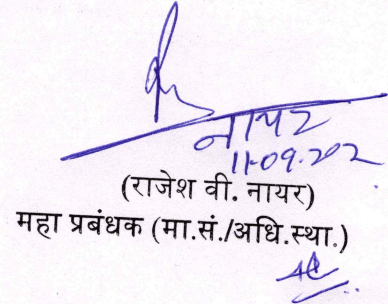 नायर
11-09-202
(राजेश वी. नायर)
महा प्रबंधक (मा.सं./अधि.स्था.)